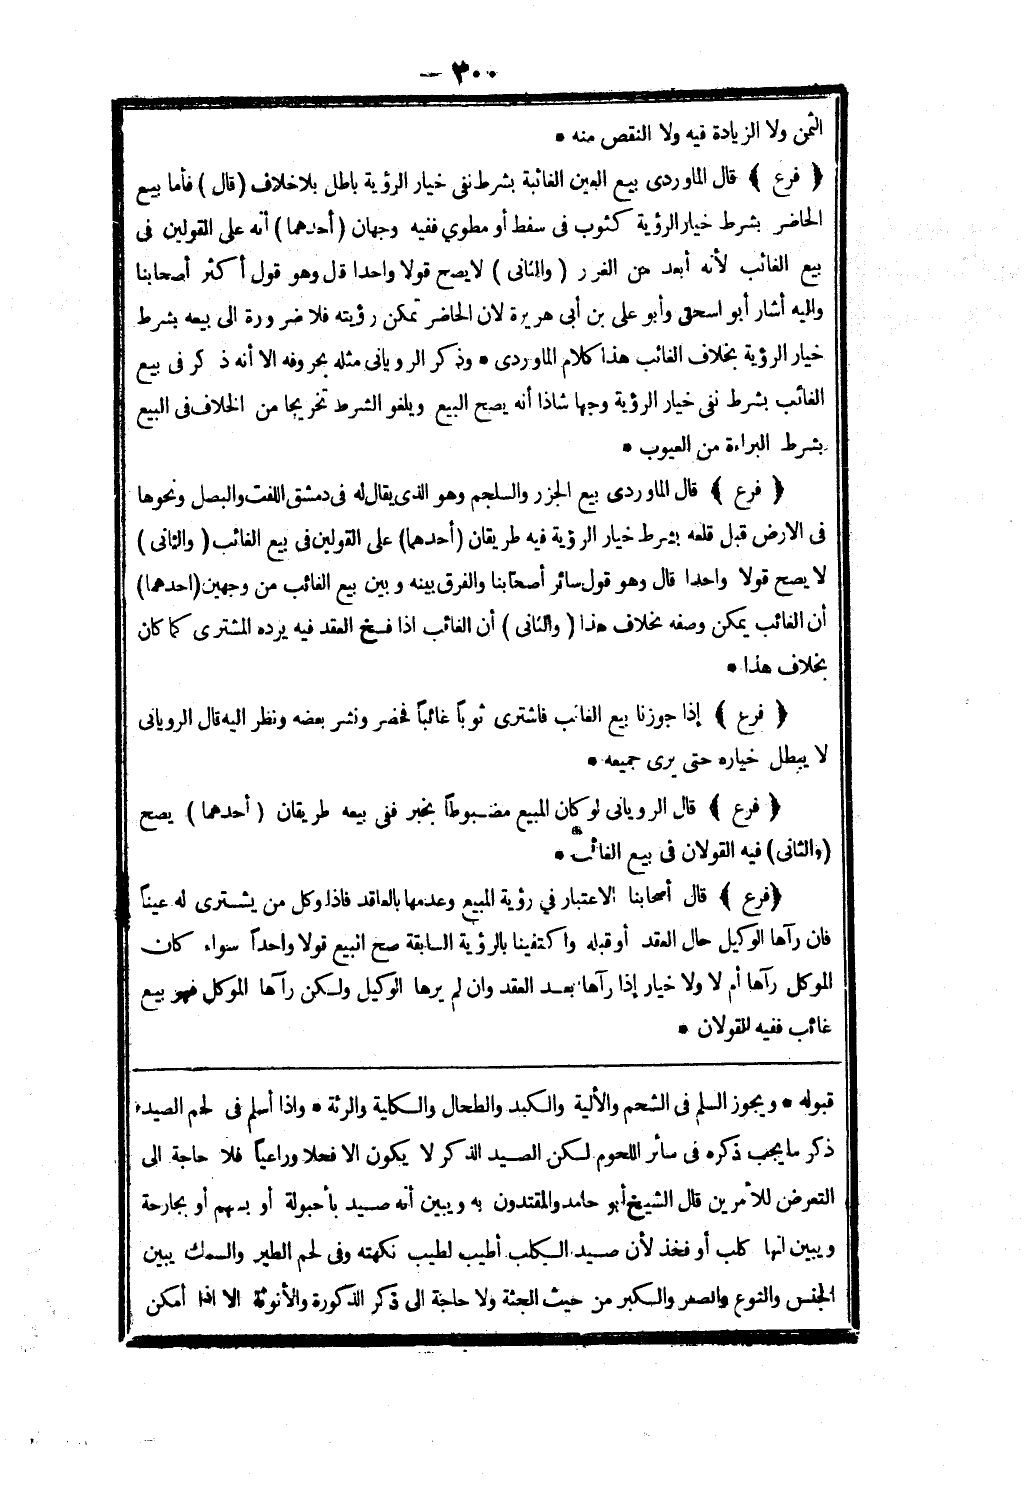 — ٣٠٠
الثمن ولا الزيادة فيه ولا النقص منه *
﴿ فرع ﴾ قال الماوردى بيع العين الغائبة بشرط نفى خيار الرؤية باطل بلاخلاف (قال) فأما بيع
الحاضر بشرط خيار الرؤية كثوب فى سفط أو مطوي ففيه وجهان (أحدهما) أنه على القولين فى
بيع الغائب لأنه أبعد من الغرر ( والثانى ) لايصح قولا واحدا قال وهو قول أكثر أصحابنا
واليه أشار أبو اسحق وأبو على بن أبى هريرة لان الحاضر تمكن رؤيته فلا ضرورة الى بيعه بشرط
خيار الرؤية بخلاف الغائب هذا كلام الماوردى * وذكر الرويانى مثله بحروفه الا أنه ذكر فى بيع
الغائب بشرط نفى خيار الرؤية وجها شاذا أنه يصح البيع ويلغو الشرط تخريجا من الخلاف فى البيع
بشرط البراءة من العيوب *
﴿ فرع ﴾ قال الماوردى بيع الجزر والسلجم وهو الذى يقال له فى دمشق اللفت والبصل ونحوها
فى الارض قبل قلعه بشرط خيار الرؤية فيه طريقان (أحدهما) على القولين فى بيع الغائب ( والثانى )
لا يصح قولا واحدا قال وهو قول سائر أصحابنا والفرق بينه وبين بيع الغائب من وجهين (احدهما)
أن الغائب يمكن وصفه بخلاف هذا ( والثانى ) أن الغائب اذا فسخ العقد فيه يرده المشترى كما كان
بخلاف هذا *
﴿ فرع ﴾ إذا جوزنا بيع الغائب فاشترى ثوباً غائباً فحضر ونشر بعضه ونظر اليه قال الرويانى
لا يبطل خياره حتى يرى جميعه *
﴿ فرع ﴾ قال الرويانى لو كان المبيع مضبوطاً بخبر ففى بيعه طريقان ( أحدهما ) يصح
(والثانى) فيه القولان فى بيع الغائب *
﴿فرع ﴾ قال أصحابنا الاعتبار في رؤية المبيع وعدمها بالعاقد فاذا وكل من يشترى له عيناً
فان رآها الوكيل حال العقد أو قبله واكتفينا بالرؤية السابقة صح البيع قولا واحداً سواء كان
الموكل رآها أم لا ولا خيار إذا رآها بعد العقد وان لم يرها الوكيل ولكن رآها الموكل فهو بيع
غائب ففيه القولان *
قبوله * ويجوز السلم فى الشحم والألية والكبد والطحال والكلية والرئة * واذا أسلم فى لحم الصيد
ذكر ما يجب ذكره فى سائر اللحوم لكن الصيد الذكر لا يكون الا فحلا وراعياً فلا حاجة الى
التعرض للأمرين قال الشيخ أبو حامد والمقتدون به ويبين أنه صيد بأحبولة أو بسهم أو بجارحة
ويبين انها كلب أو فخذ لأن صيد الكلب أطيب لطيب نكهته وفى لحم الطير والسمك يبين
الجنس والنوع والصغر والكبر من حيث الجثة ولا حاجة الى ذكر الذكورة والأنوثة الا اذا أمكن